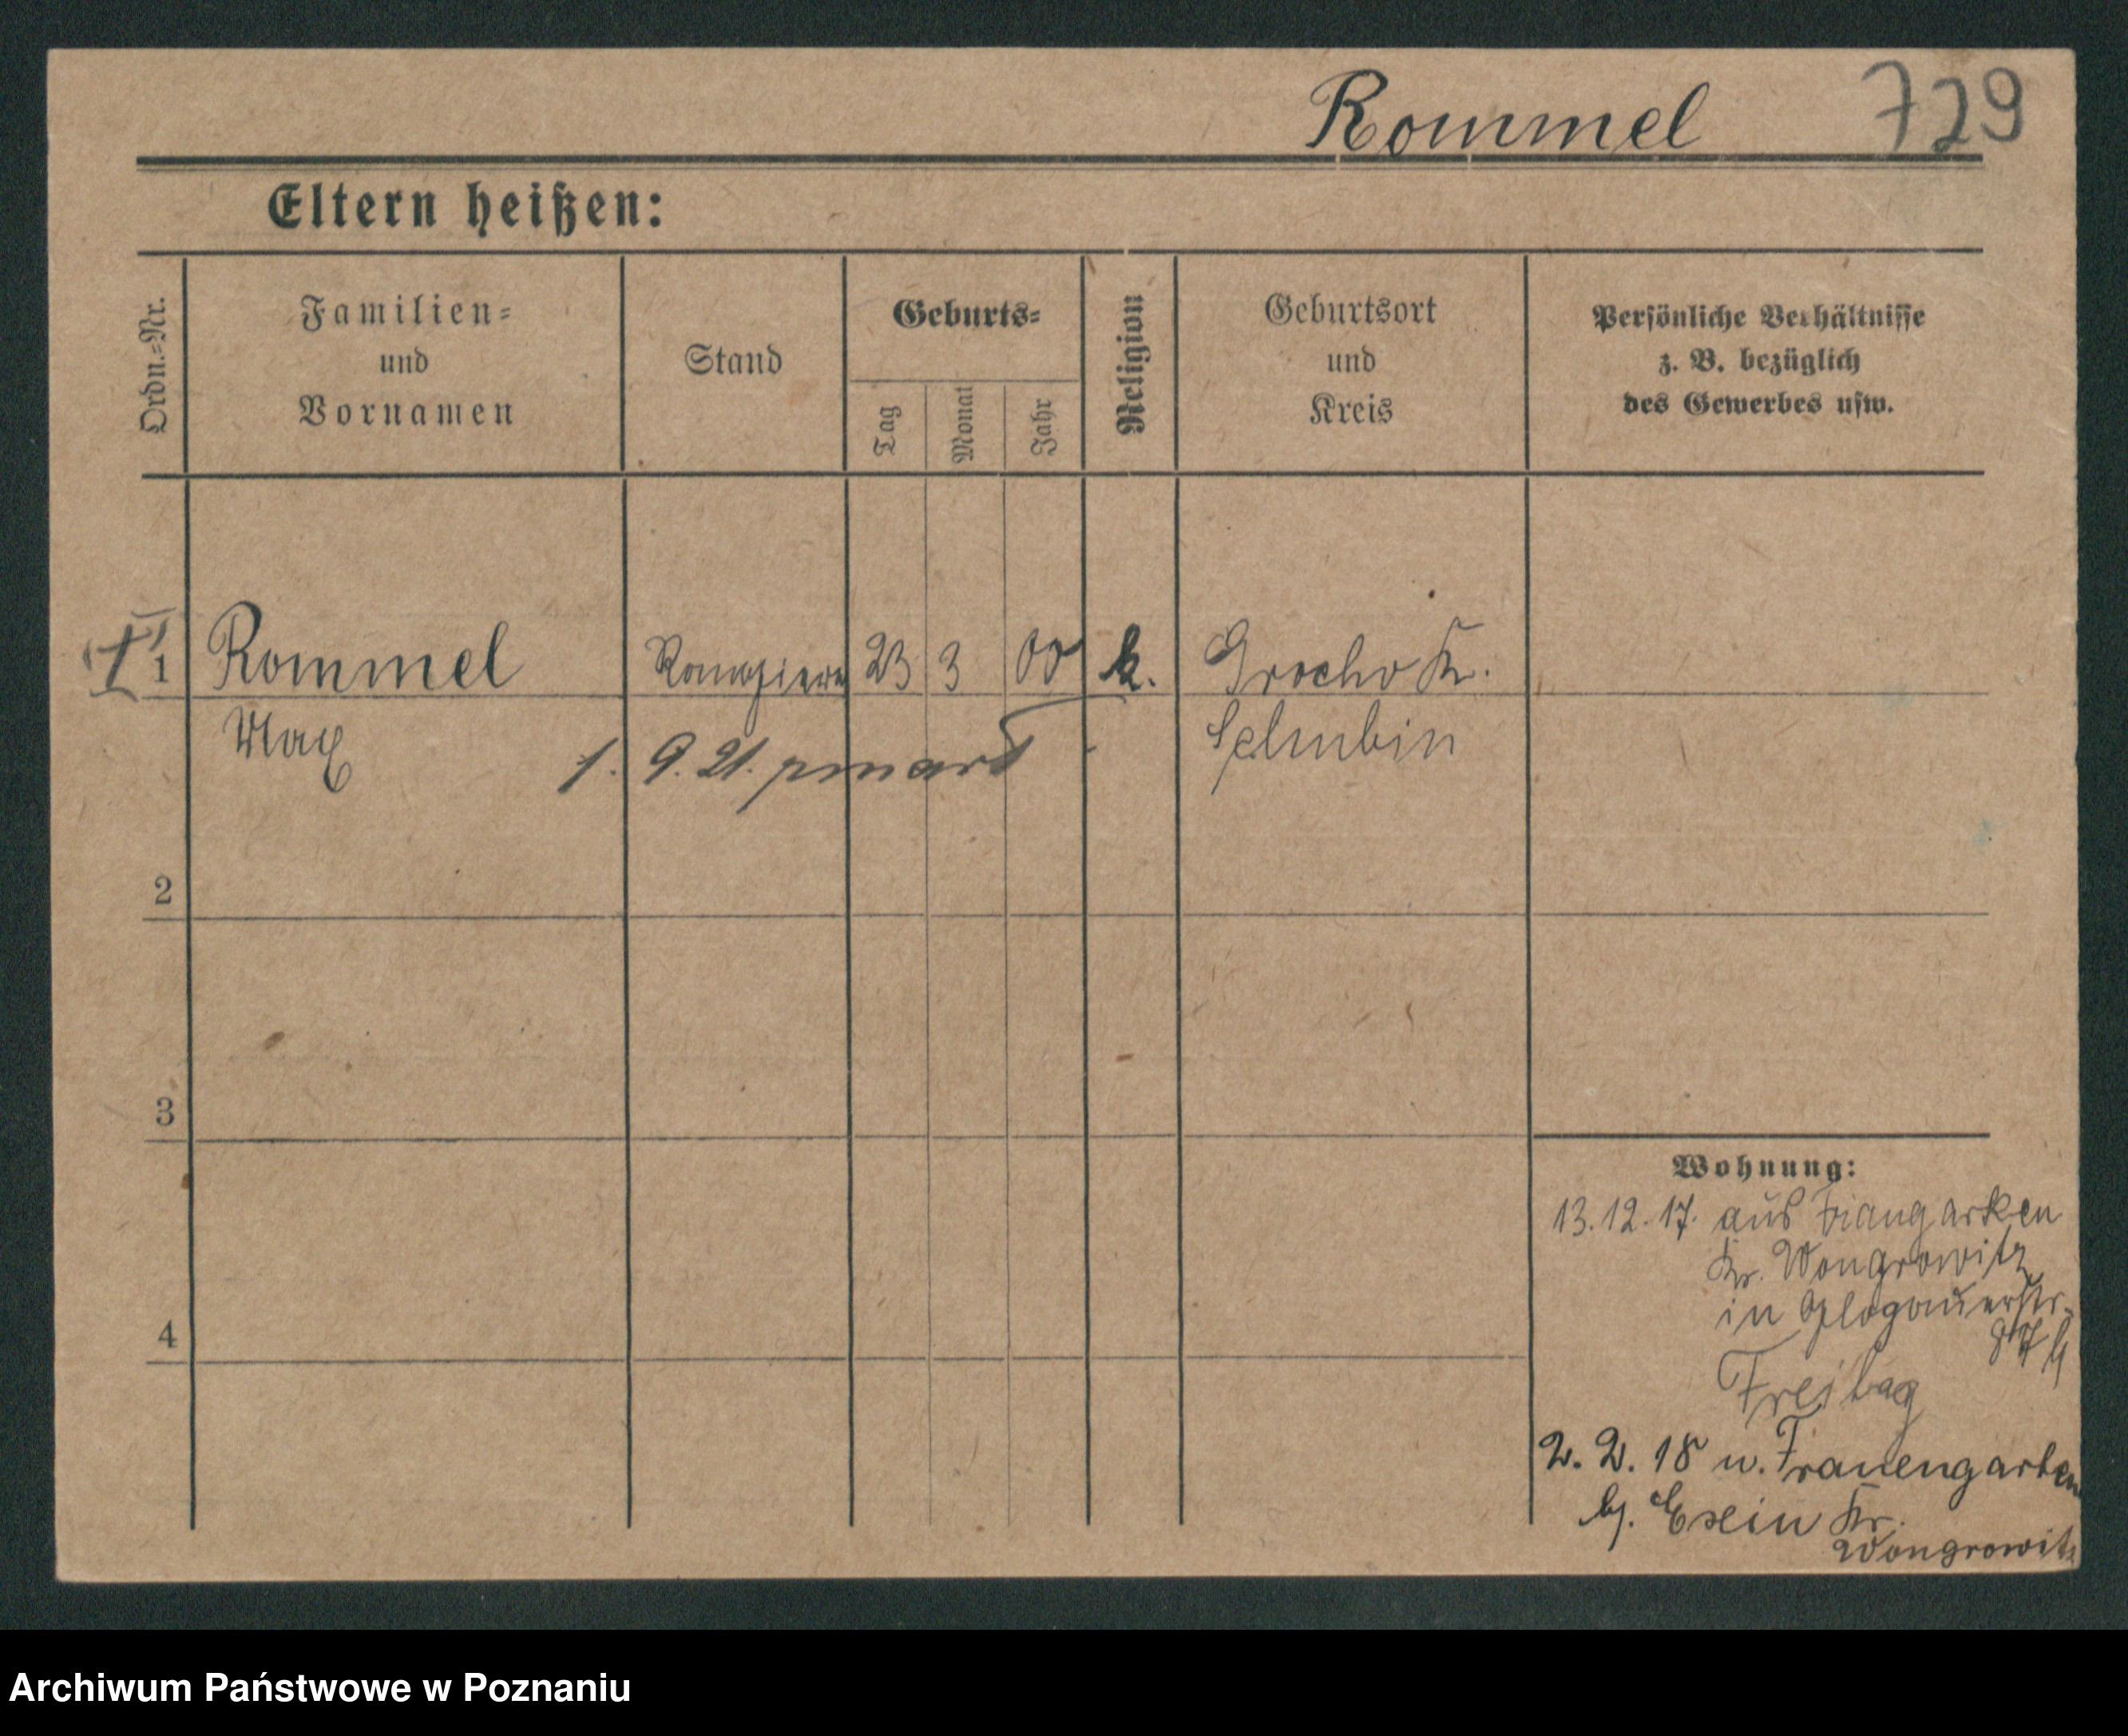 Rommel 729
Eltern heißen:
Ordn.=Nr.
Familien=
und
Vornamen
Stand
Geburts=
Tag
Monat
Jahr
Religion
Geburtsort
und
Kreis
Persönliche Verhältnisse
z. B. bezüglich
des Gewerbes usw.
1 Rommel 23 3 00 k. Grocho Kr.
Max Schubin
1. 9. 21. zmarł
2
3
4
Wohnung:
13.12.17. aus
Kr. Wongrowitz
in Glogauerstr.
Freitag
2. 2. 18 n. Frauengarten
b/. Exin Kr.
Wongrowitz
Archiwum Państwowe w Poznaniu